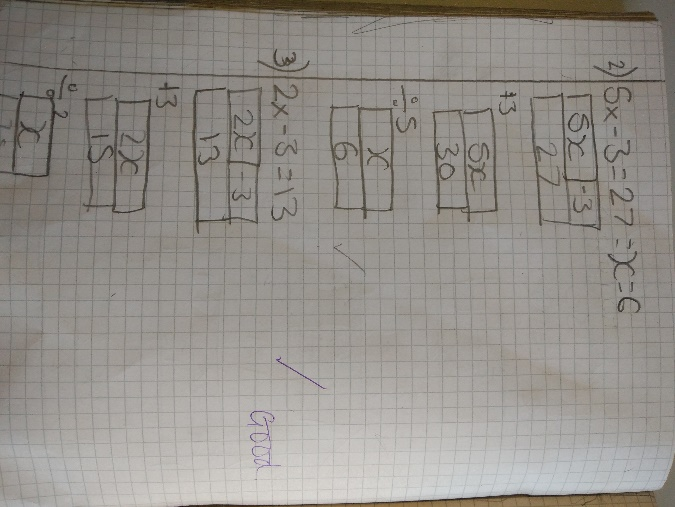 2) 5x - 3 = 27 = x = 6
5x -3
27
+3
5x
30
÷5
x
6
3) 2x - 3 = 13
2x -3
13
+3
2x
15
÷2
x
Good